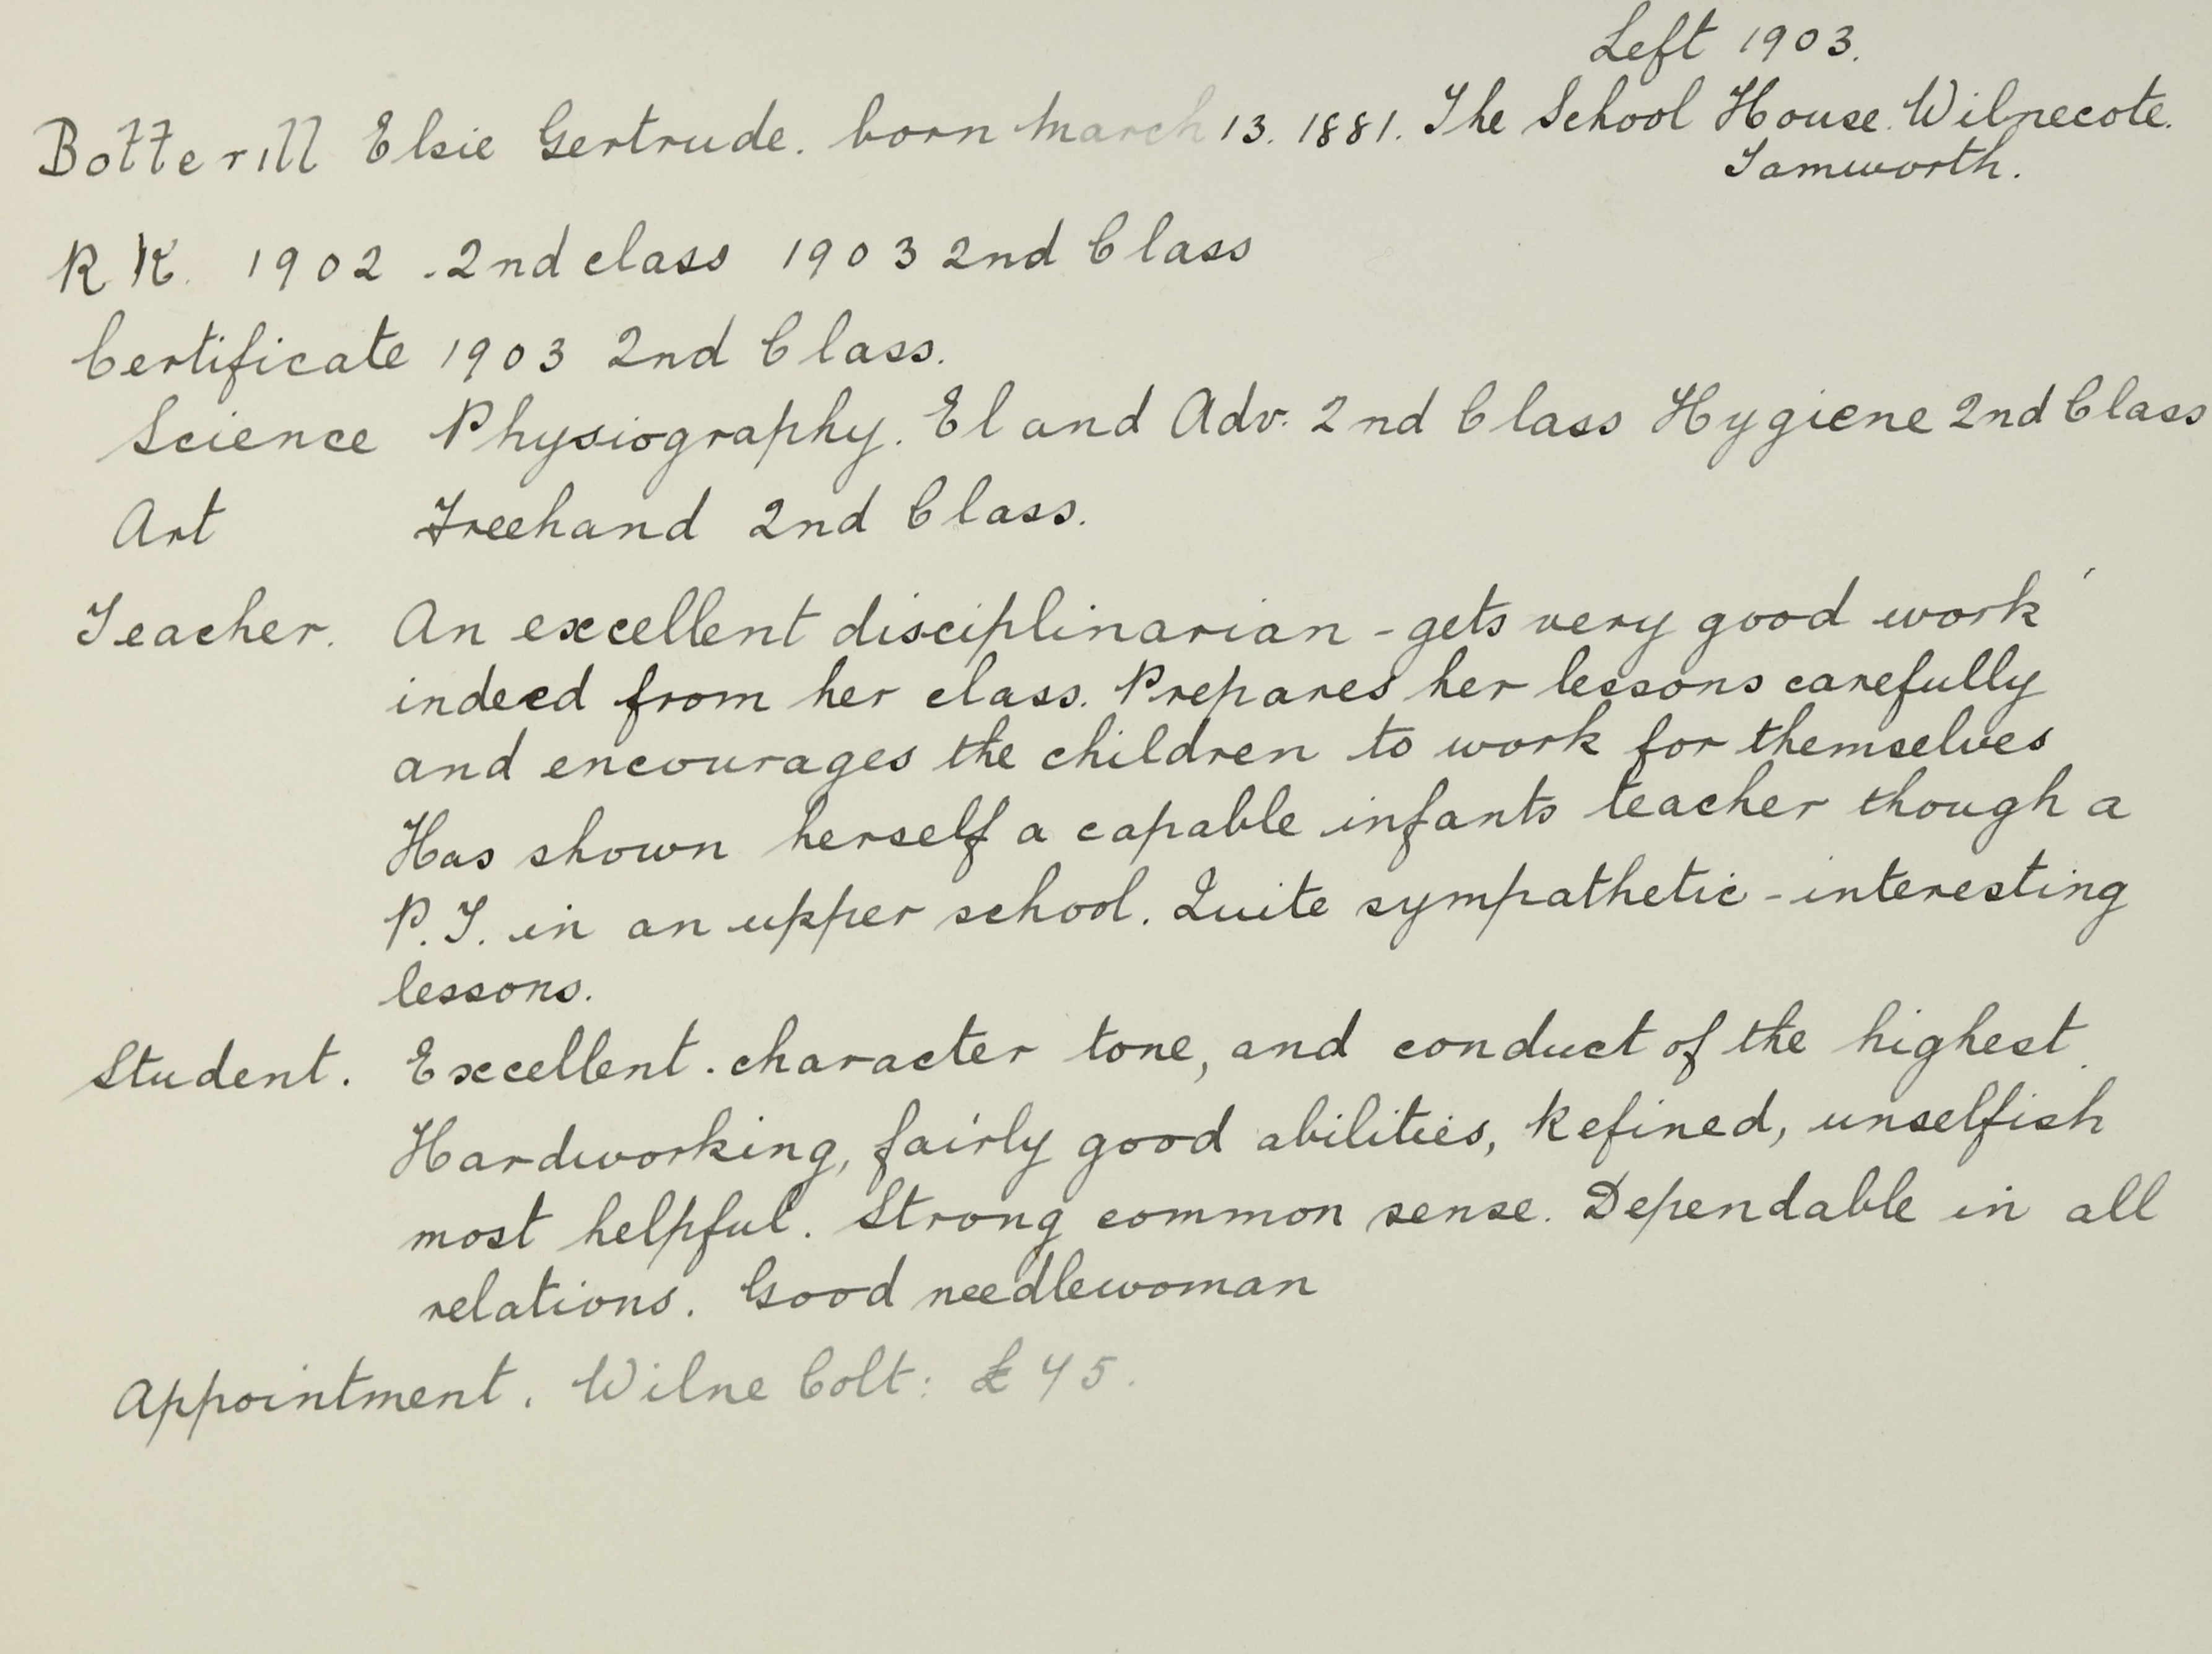 Left 1903.
Botterill Elsie Gertrude. born March 13. 1881. The School House. Wilnecote.
Tamworth.
R K. 1902 . 2nd class 1903 2nd Class
Certificate 1903 2nd Class.
Science Physiography. El and Adv. 2nd Class Hygiene 2nd Class
Art Freehand 2nd Class.
Teacher. An excellent disciplinarian - gets very good work
indeed from her class. Prepares her lessons carefully
and encourages the children to work for themselves
Has shown herself a capable infants teacher though a
P.T. in an upper school. Quite sympathetic - interesting
lessons.
Student. Excellent. character tone, and conduct of the highest.
Hardworking, fairly good abilities, Refined, unselfish
most helpful. Strong common sense. Dependable in all
relations. Good needlewoman
Appointment. Wilne Colt: £45.